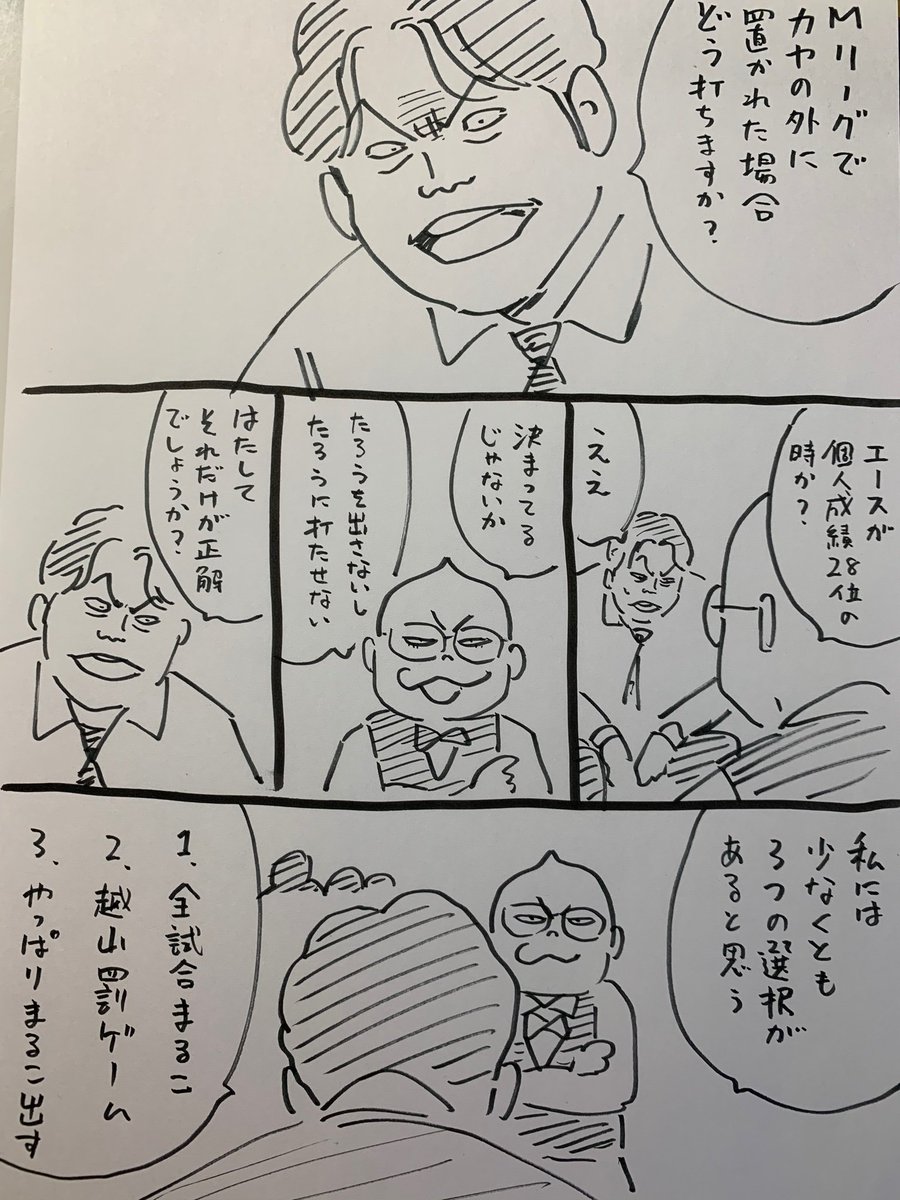 Mリーグで
カヤの外に
置かれた場合
どう打ちますか?
エースが
個人成績28位の
時か?
ええ
決まってる
じゃないか
たろうを出さないし
たろうに打たせない
はたして
それだけが正解
でしょうか?
私には
少なくとも
3つの選択が
あると思う
1、全試合まるこ
2、越山罰ゲーム
3、やっぱりまるこ出す